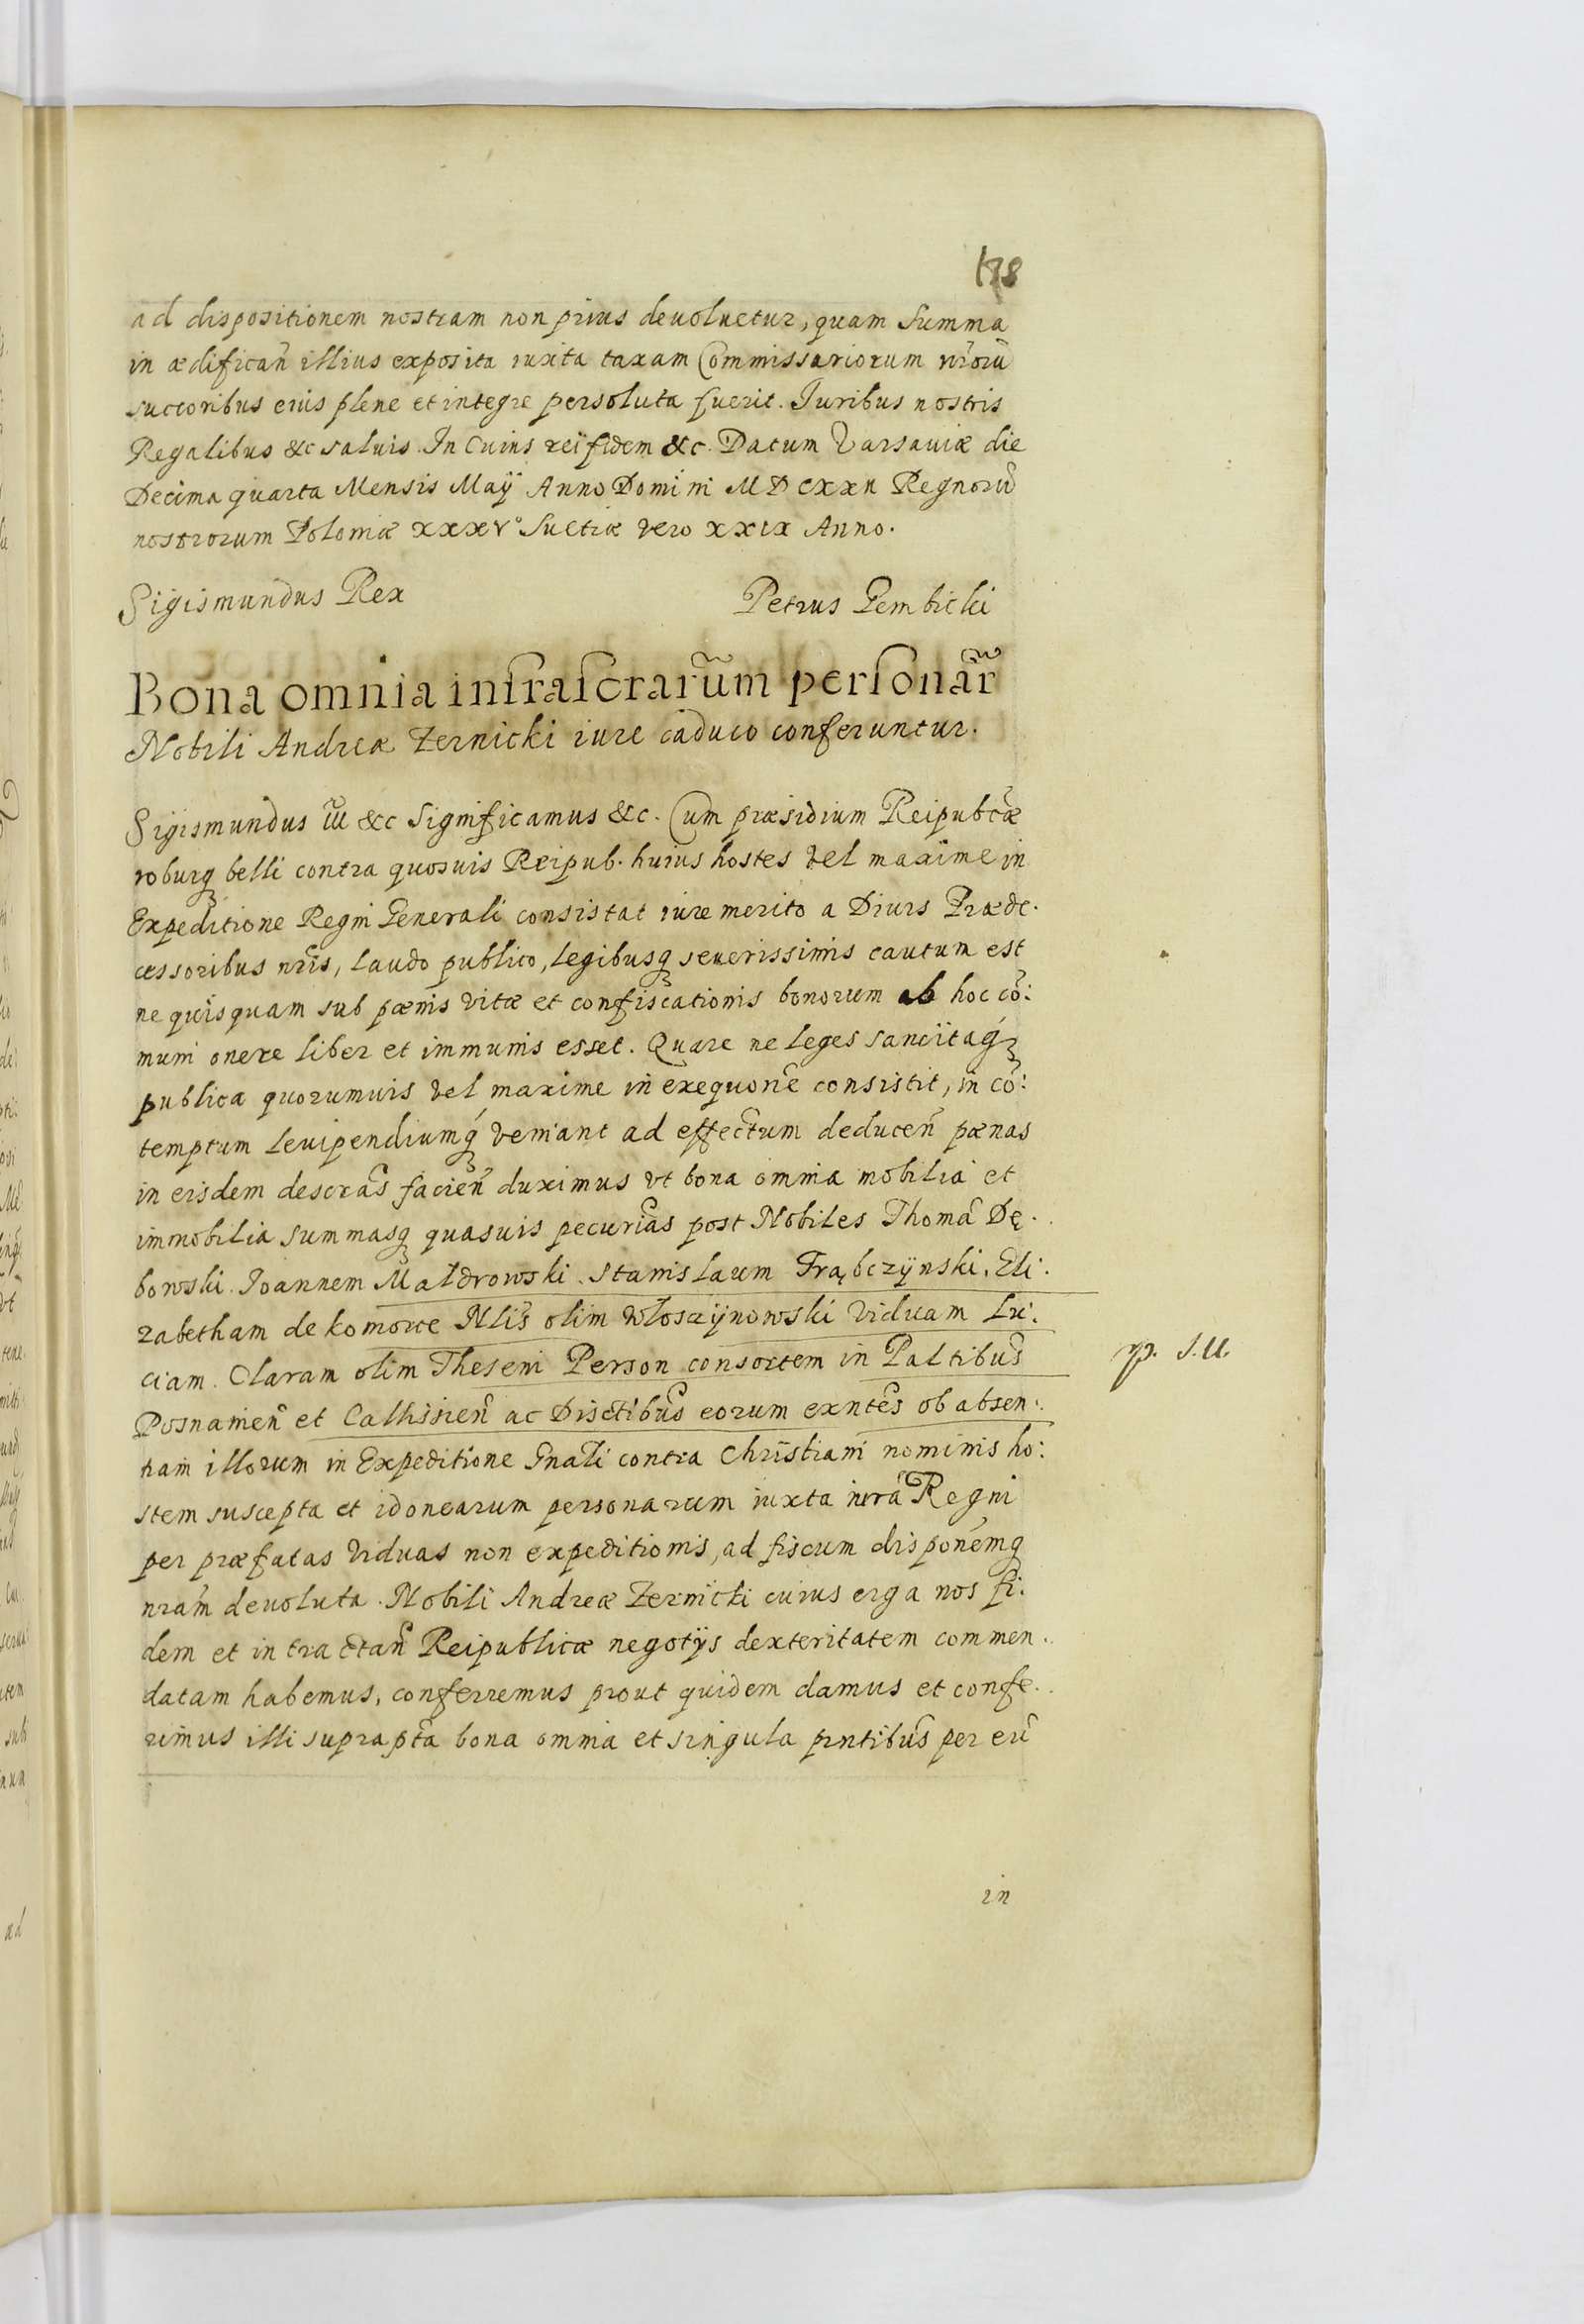 178
ad dispositionem nostram non prius devoluetur, quam Summa
in ædifican̄ illius exposita iuxta taxam Commissariorum nr̄orū
succoribus eius plene et integre persoluta fuerit. Iuribus nostris
Regalibus &c saluis. In Cuius reï fidem &c. Datum Varsaviæ die
Decima quarta Mensis Maÿ Anno Domini MDCXXII Regnorū
nostrorum Poloniæ XXXVº Suetiæ vero XXIX Anno.
Sigismundus Rex Petrus Gembicki
Bona omnia infrascrarum̃ personar̃
Nobili Andreæ Zernicki iure caduco conferuntur.
Sigismundus III &c Significamus &c. Cum præsidium Reipubcæ̃
roburq₃ belli contra quosuis Reipub. huius hostes vel maxime in
Expeditione Regni Generali consistat iure merito a Diuis Præde.
cessoribus nr̄is, laudo publico, legibusq₃ seuerissimis cautum est
ne quisquam sub pænis vitæ et confiscationis bonorum ab hoc cō:
muni onere liber et immunis esset. Quare ne leges sancitaq₃
publica quorumuis vel maxime in exequōne consistit, in cō:
temptum leuipendiumq₃ veniant ad effectum deducen̄ pænas
in eisdem descrās facien̄ duximus vt bona omnia mobilia et
immobilia summasq₃ quasuis pecuriās post Nobiles Thomā Dę.
bowski. Ioannem Maldrowski. Stanislaum Trąbczÿnski. Eli.
zabetham de komorce Nlīs olim Włosczÿnowski viduam Lu.
ciam. Claram olim Theseni Person consortem in Paltibūs
Posnanien̄ et Callissien̄ ac Disctibūs eorum exntēs ob absen:
tiam illorum in Expeditione Gnali contra Christiani nominis ho:
stem suscepta et idonearum personarum iuxta iurā Regni
per præfatas viduas non expeditionis, ad fiscum disponēmq₃
nrām deuoluta. Nobili Andreæ Zernicki cuius erga nos fi.
dem et in tractan̄ Reipublicæ negotÿs dexteritatem commen.
datam habemus, conferremus prout quidem damus et confe.
rimus illi suprapta bona omnia et singula pntibūs per eū
in